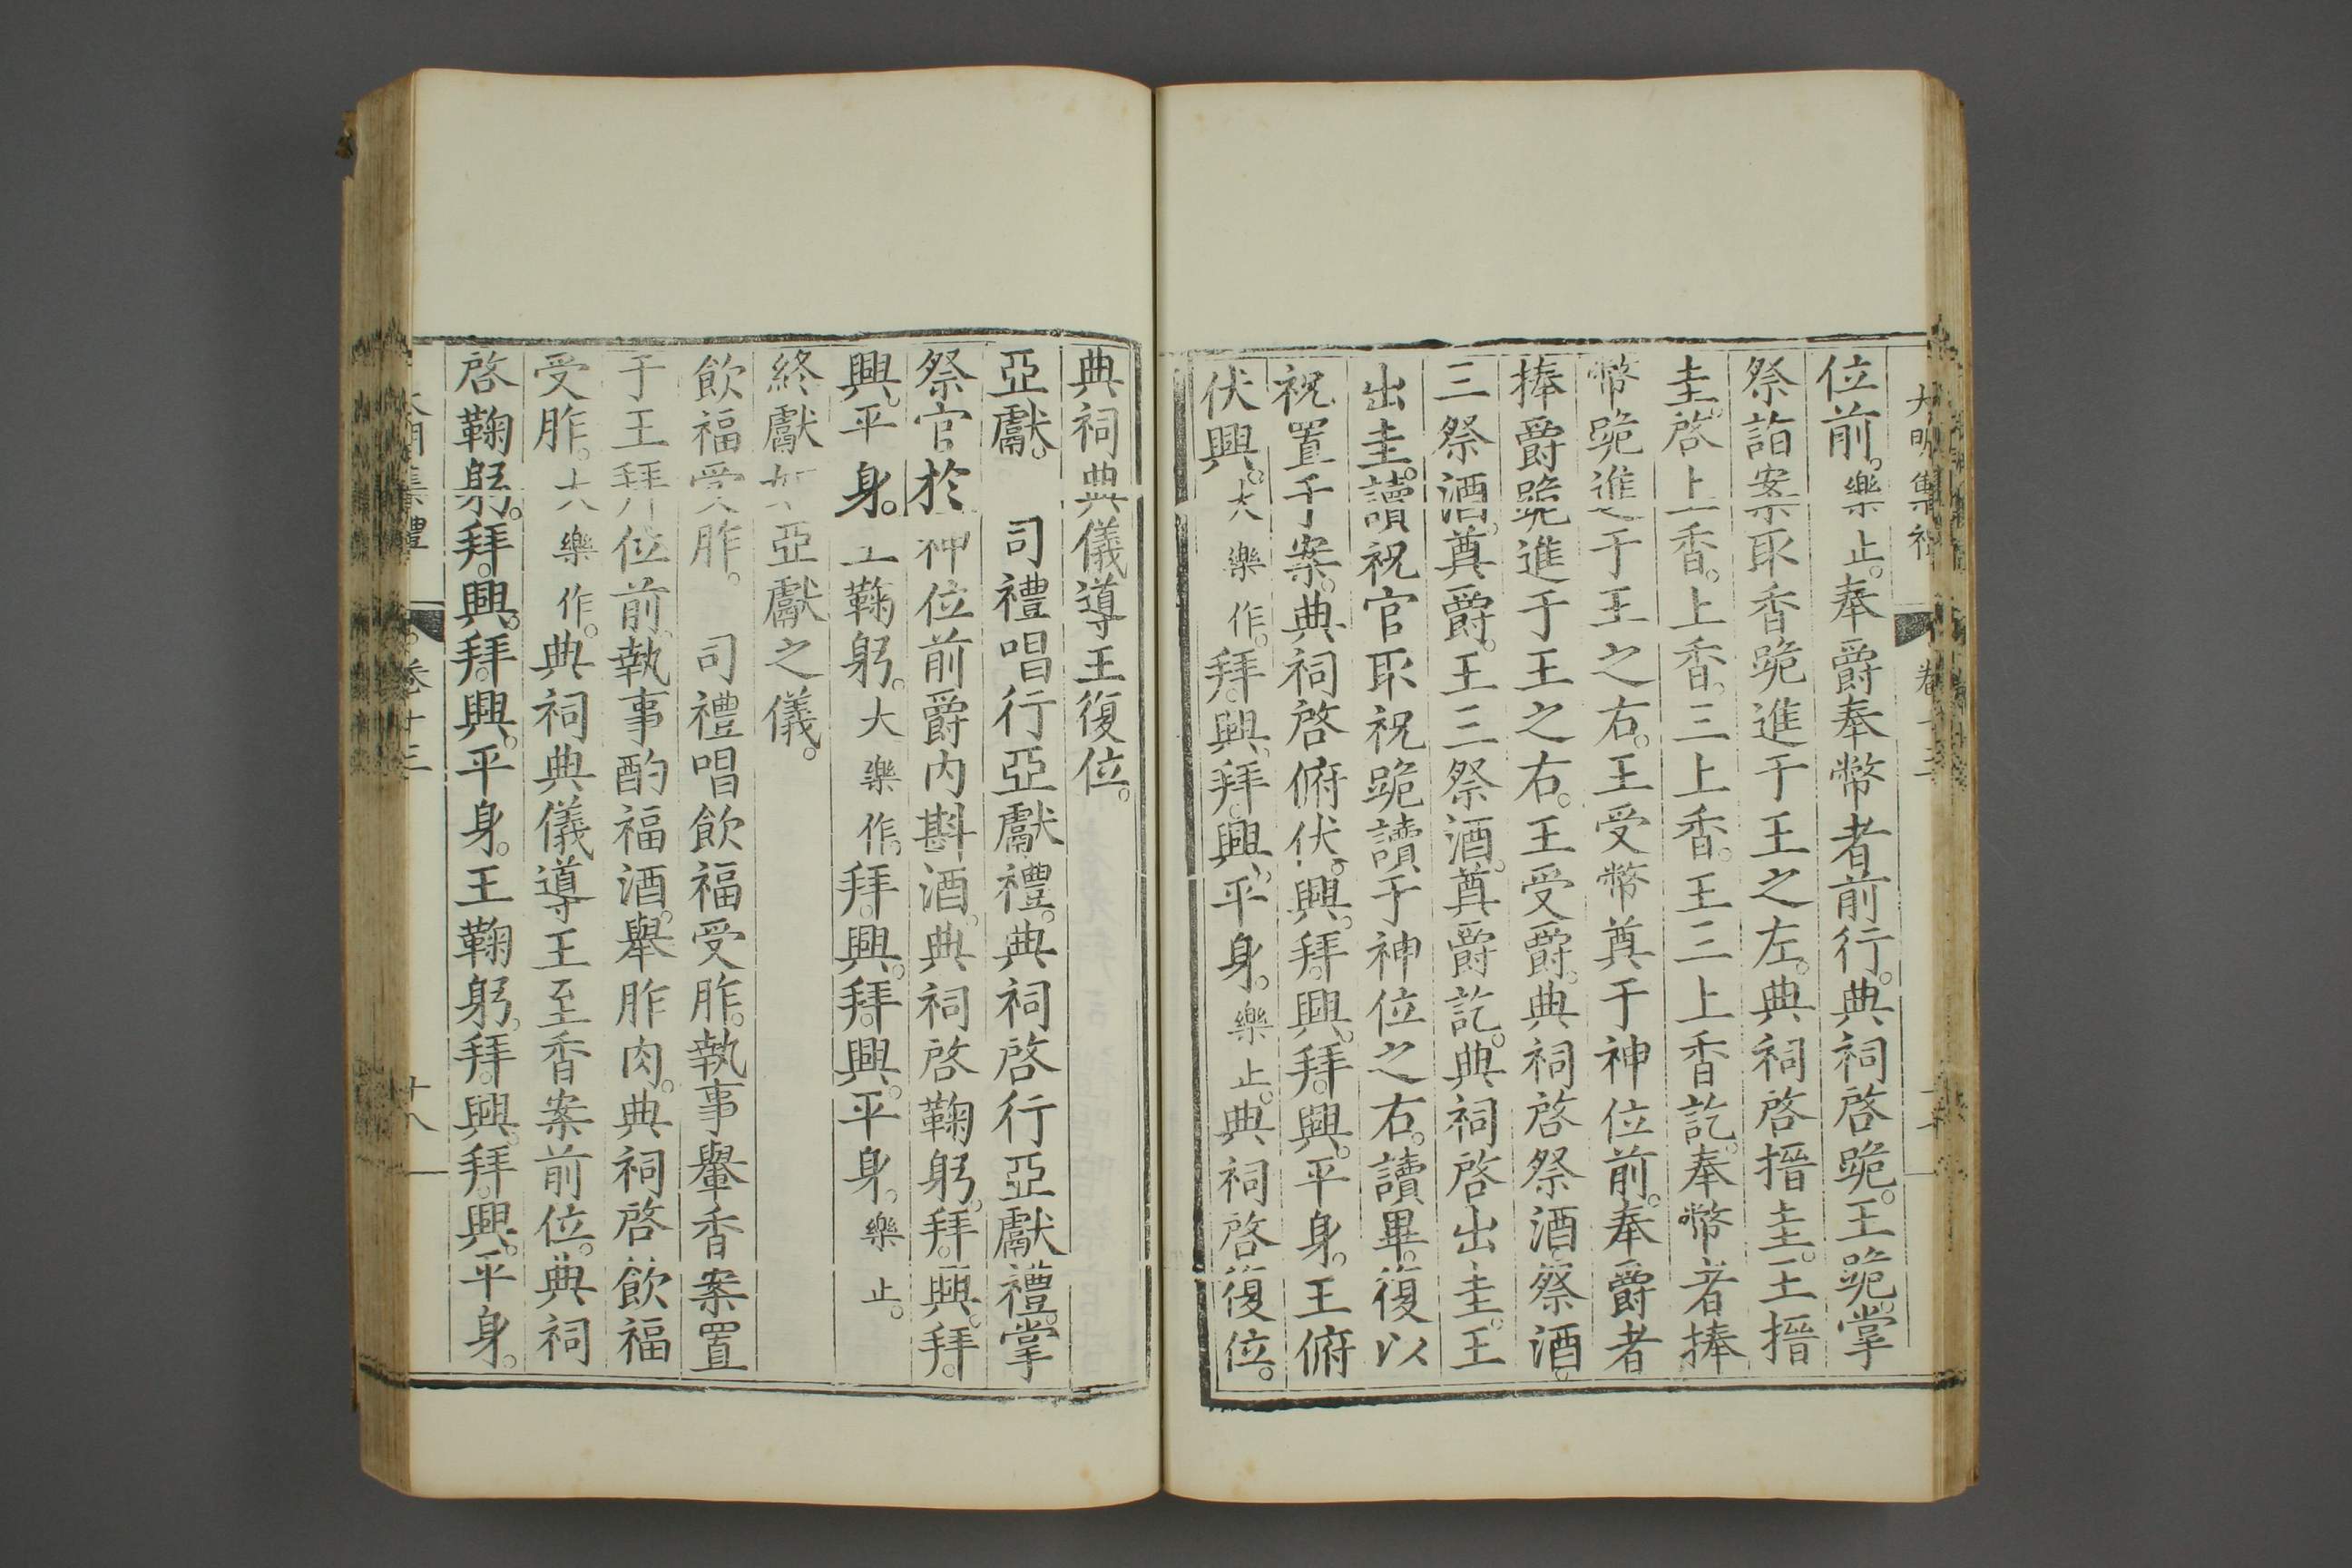 位前。樂止。奉爵奉幣者前行。典祠啓跪。王跪。掌
祭詣案取香跪進于王之左。典祠啓搢圭。王搢
圭。啓上香。上香。三上香。王三上香訖。奉幣者捧
幣跪進于王之右。王受幣奠于神位前。奉爵者
捧爵跪進于王之右。王受爵。典祠啓祭酒。祭酒。
三祭酒。奠爵。王三祭酒。奠爵訖。典祠啓出圭。王
出圭。讀祝官取祝跪讀于神位之右。讀畢。復以
祝置于案。典祠啓俯伏。興。拜。興。拜。興。平身。王俯
伏興。大樂作。拜。興。拜。興。平身。樂止。典祠啓復位。
典祠典儀導王復位。
亞獻。 司禮唱行亞獻禮。典祠啓行亞獻禮。掌
祭官於神位前爵內斟酒。典祠啓鞠躬。拜。興。拜。
興。平身。王鞠躬。大樂作。拜。興。拜。興。平身。樂止。
終獻如亞獻之儀。
飲福受胙。 司禮唱飲福受胙。執事轝香案置
于王拜位前。執事酌福酒。舉胙肉。典祠啓飲福
受胙。大樂作。典祠典儀導王至香案前位。典祠
啓鞠躬。拜。興。拜。興。平身。王鞠躬。拜。興。拜。興。平身。
大明集禮 卷十三 十八